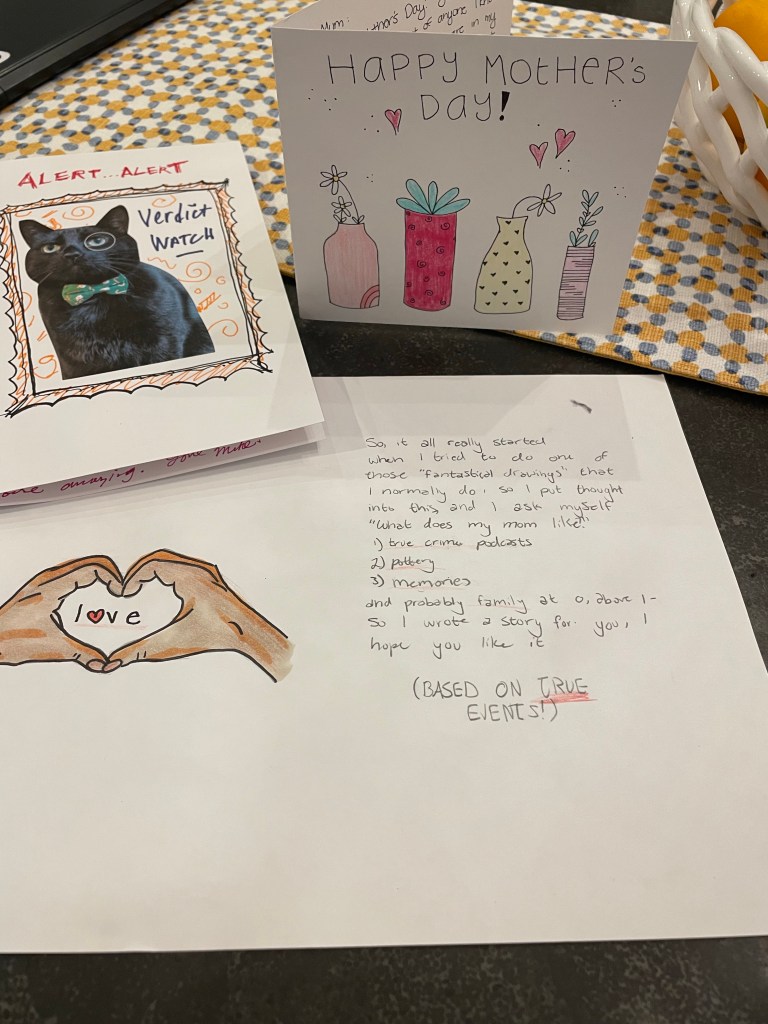 Mum:
Day:
of anyone I
in my
HAPPY MOTHER'S
DAY!
ALERT...ALERT
Verdict
WATCH
amazing. Love
love
So, it all really started
when I tried to do one of
those "fantastical drawings" that
I normally do, so I put thought
into this, and I ask myself
"What does my mom like?"
1) true crime podcasts
2) pottery
3) memories
and probably family at 0, above 1-
So I wrote a story for you, I
hope you like it
(BASED ON TRUE
EVENTS!)